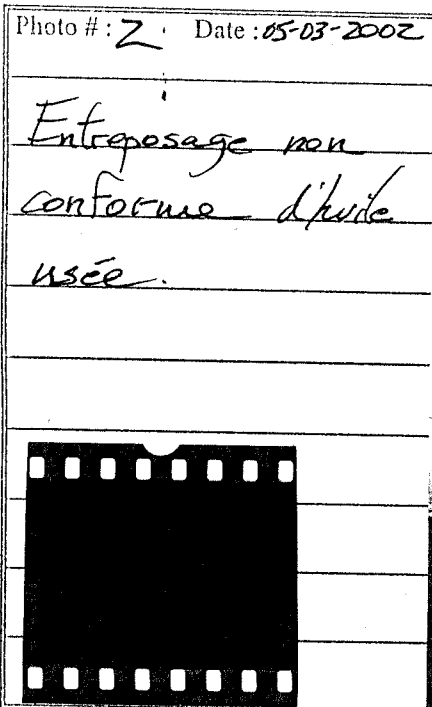 Photo # : 2 Date : 05-03-2002
Entreposage non
conforme d'huile
usée.